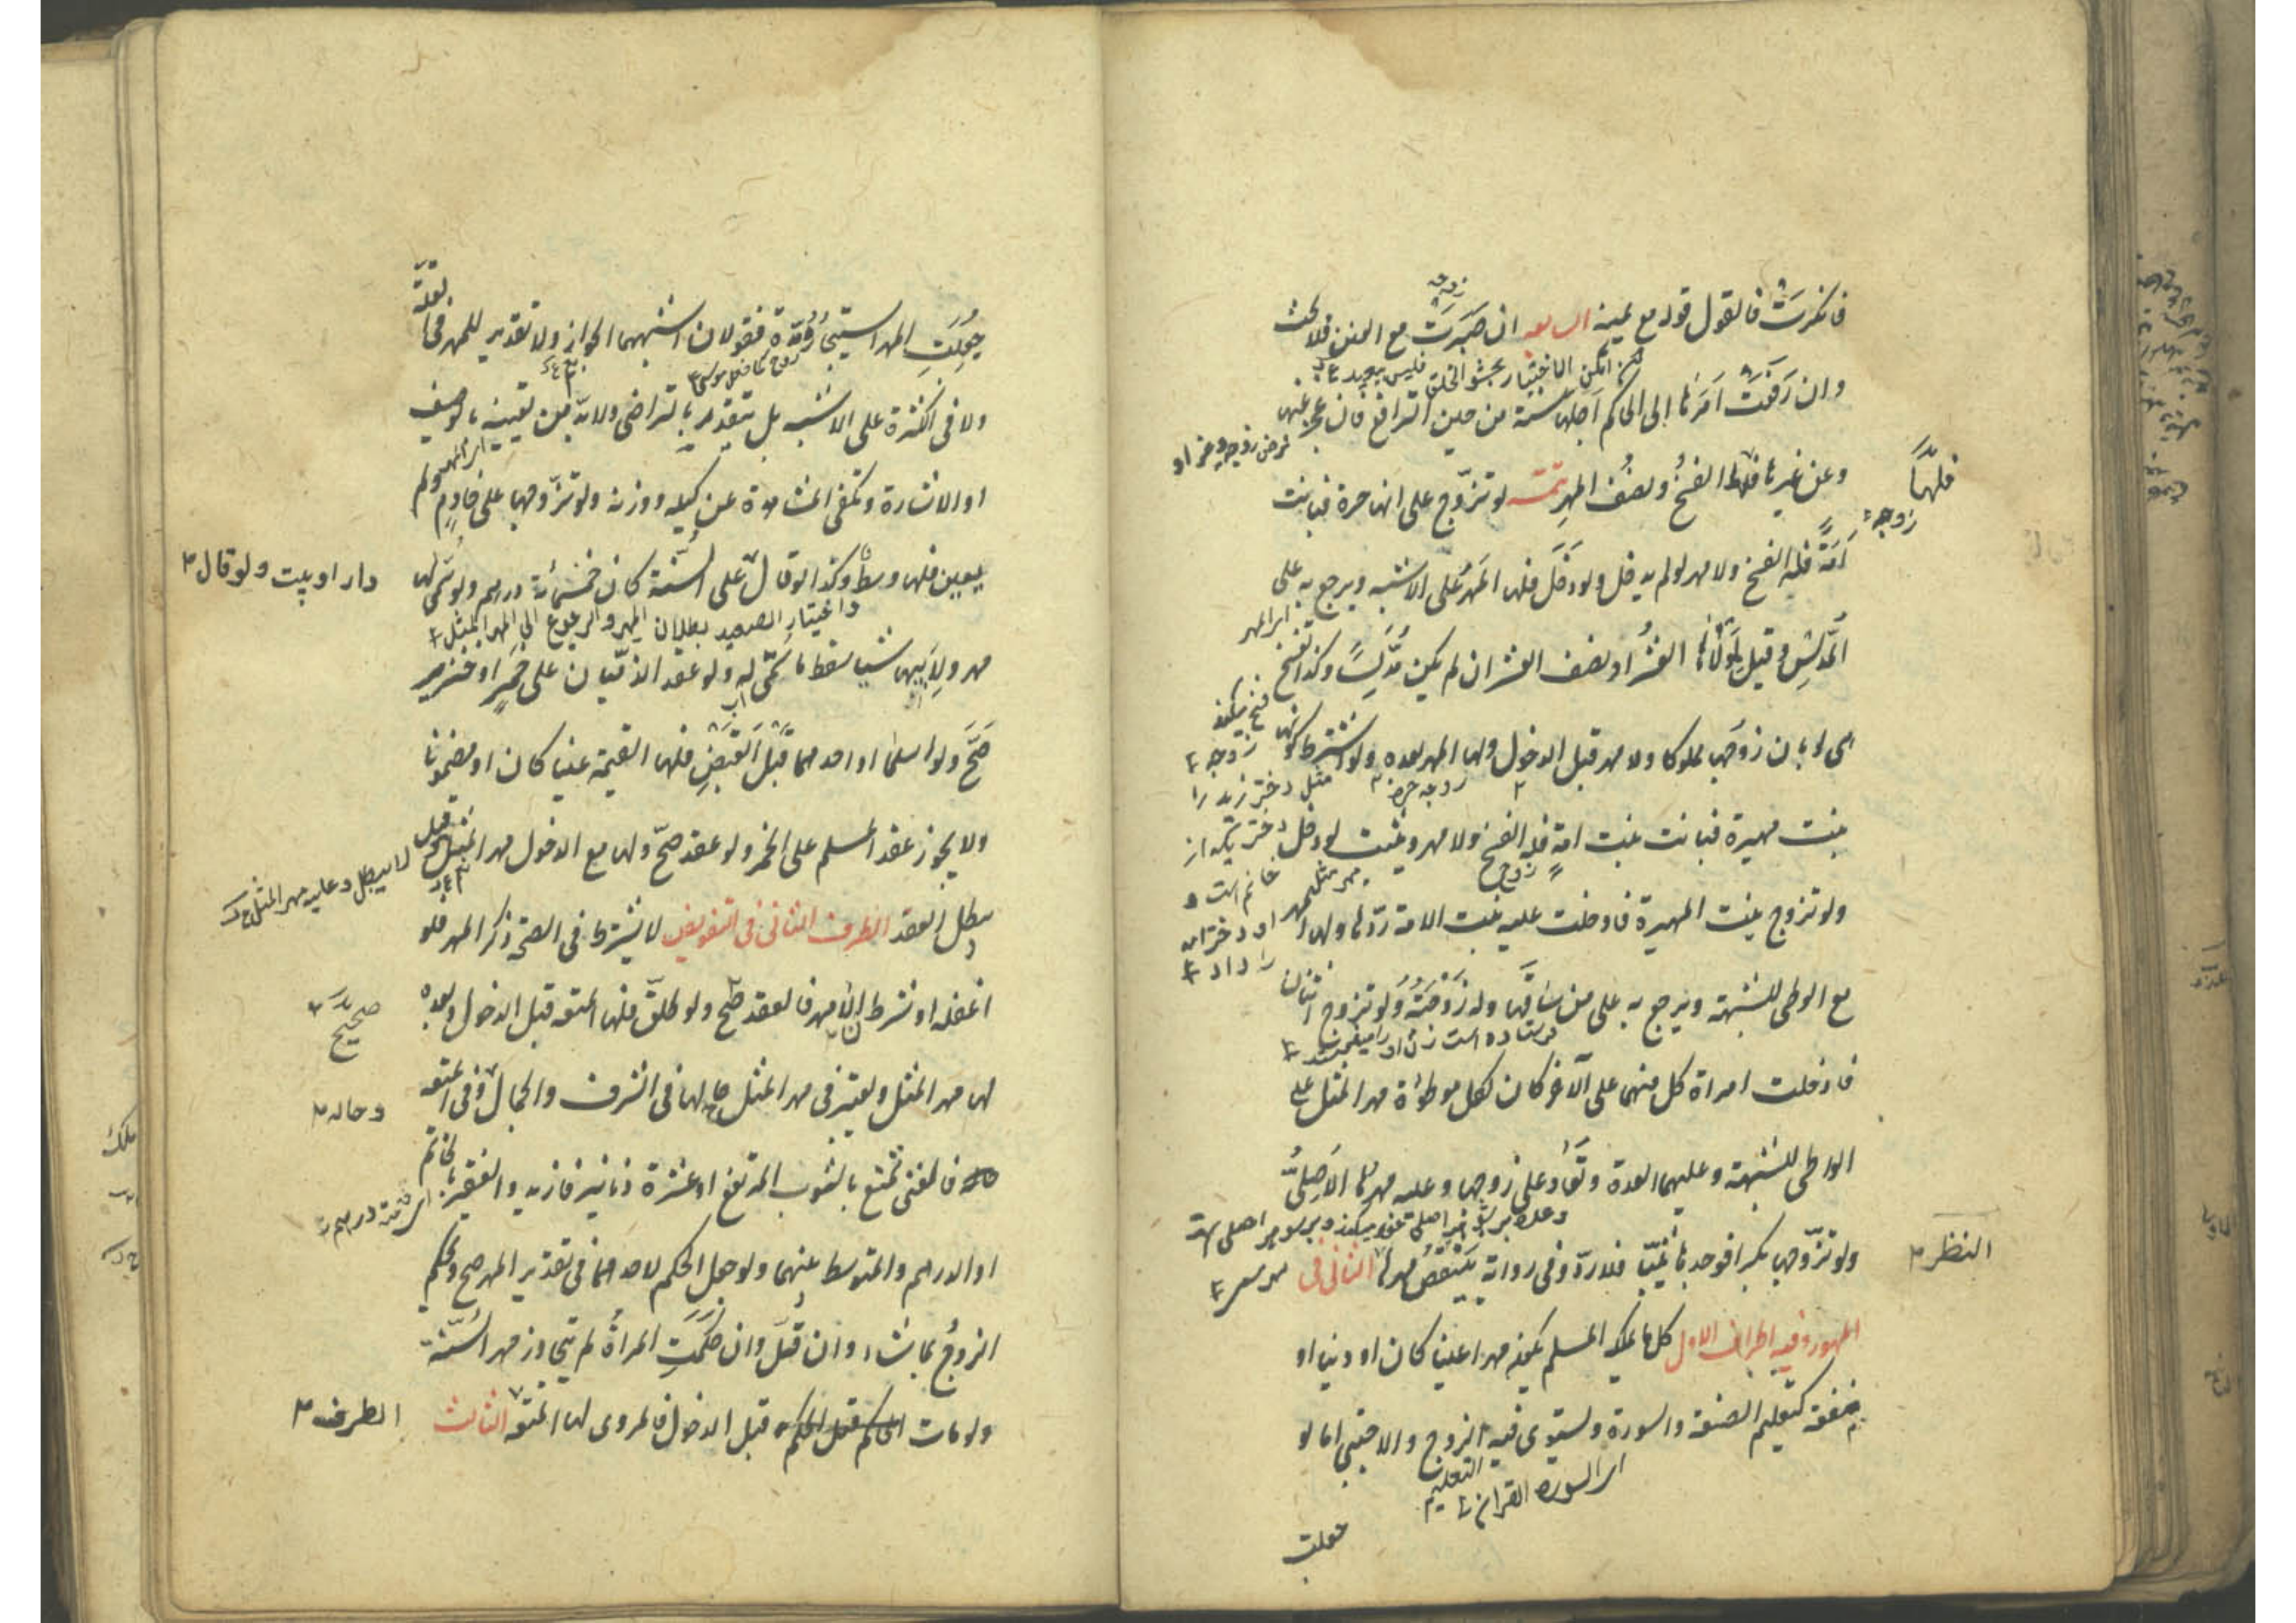 فانكرت فالقول قوله مع يمينه السابعة ان صبرت مع العنن فلا بحث
وان رفعت امرها الى الحاكم اجلها سنة من حين الترافع فان عجز عنها
وعن غيرها فلها الفسخ ونصف المهر تتمة لو تزوج على انها حرة فبانت
فلها
زوجه
امة فله الفسخ ولا مهر لو لم يدخل ولو دخل فلها المهر على الاشبه ويرجع به على
اى المهر
المدلس وقيل لمولاها العشر او نصف العشر ان لم يكن مدلسا وكذا تفسخ
هى لو بان زوجها مملوكا ولا مهر قبل الدخول ولها المهر بعده ولو اشترط كونها
بنت مهيرة فبانت بنت امة فله الفسخ ولا مهر ويثبت لو دخل
ولو تزوج بنت المهيرة فادخلت عليه بنت الامة ردها ولها المهر
مع الوطى للشبهة ويرجع به على من ساقها وله زوجته ولو تزوج اثنان
فادخلت امراة كل منهما على الآخر كان لكل موطوءة مهر المثل على
الواطى للشبهة وعليهما العدة وتعاد على زوجها وعليه مهرها الاصلى
ولو تزوجها بكرا فوجدها ثيبا فلا رد وفى رواية ينتقص مهرها الثانى فى
النظر
المهور وفيه اطراف الاول كل ما يملكه المسلم يكون مهرا عينا كان او دينا او
منفعة كتعليم الصنعة والسورة ويستوى فيه الزوج والاجنبى اما لو
اى السورة القران
التعليم
جعلت
جعلت المهر استيجاره مدة فقولان اشبههما الجواز ولا تقدير للمهر فى القلة
ولا فى الكثرة على الاشبه بل يتقدر بالتراضى ولا بد من تعيينه بالوصف
او الاشارة وتكفى المشاهدة عن كيله ووزنه ولو تزوجها على خادم ولم
يعين فلها وسط وكذا لو قال على السنة كان خمسمائة درهم ولو سمى لها
دار او بيت ولو قال
واختيار الصحيد بطلان المهر والرجوع الى المهر المثل
مهر ولابيها شيئا سقط ما سمى له ولو عقد الذميان على خمر او خنزير
صح ولو اسلما او احدهما قبل القبض فلها القيمة عينا كان او مضمونا
ولا يجوز عقد المسلم على الخمر ولو عقد صح ولها مع الدخول مهر المثل وقيل
يبطل العقد الطرف الثانى فى التفويض لا يشترط فى الصحة ذكر المهر فلو
اغفله او شرط ان لا مهر فالعقد صح ولو طلق فلها المتعة قبل الدخول وبعده
صحيح
لها مهر المثل ويعتبر فى مهر المثل حالها فى الشرف والجمال وفى المتعة
وحاله
فالغنى تمتع بالثوب المرتفع او عشرة دنانير فازيد والفقير بالخاتم
او الدرهم والمتوسط بينهما ولو جعل الحكم لاحدهما فى تقدير المهر صح ويحكم
الزوج بما شاء وان قل وان حكمت المراة لم تتجاوز مهر السنة
ولو مات الحاكم قبل الحكم قبل الدخول فالمروى لها المتعة الثالث
الطرف